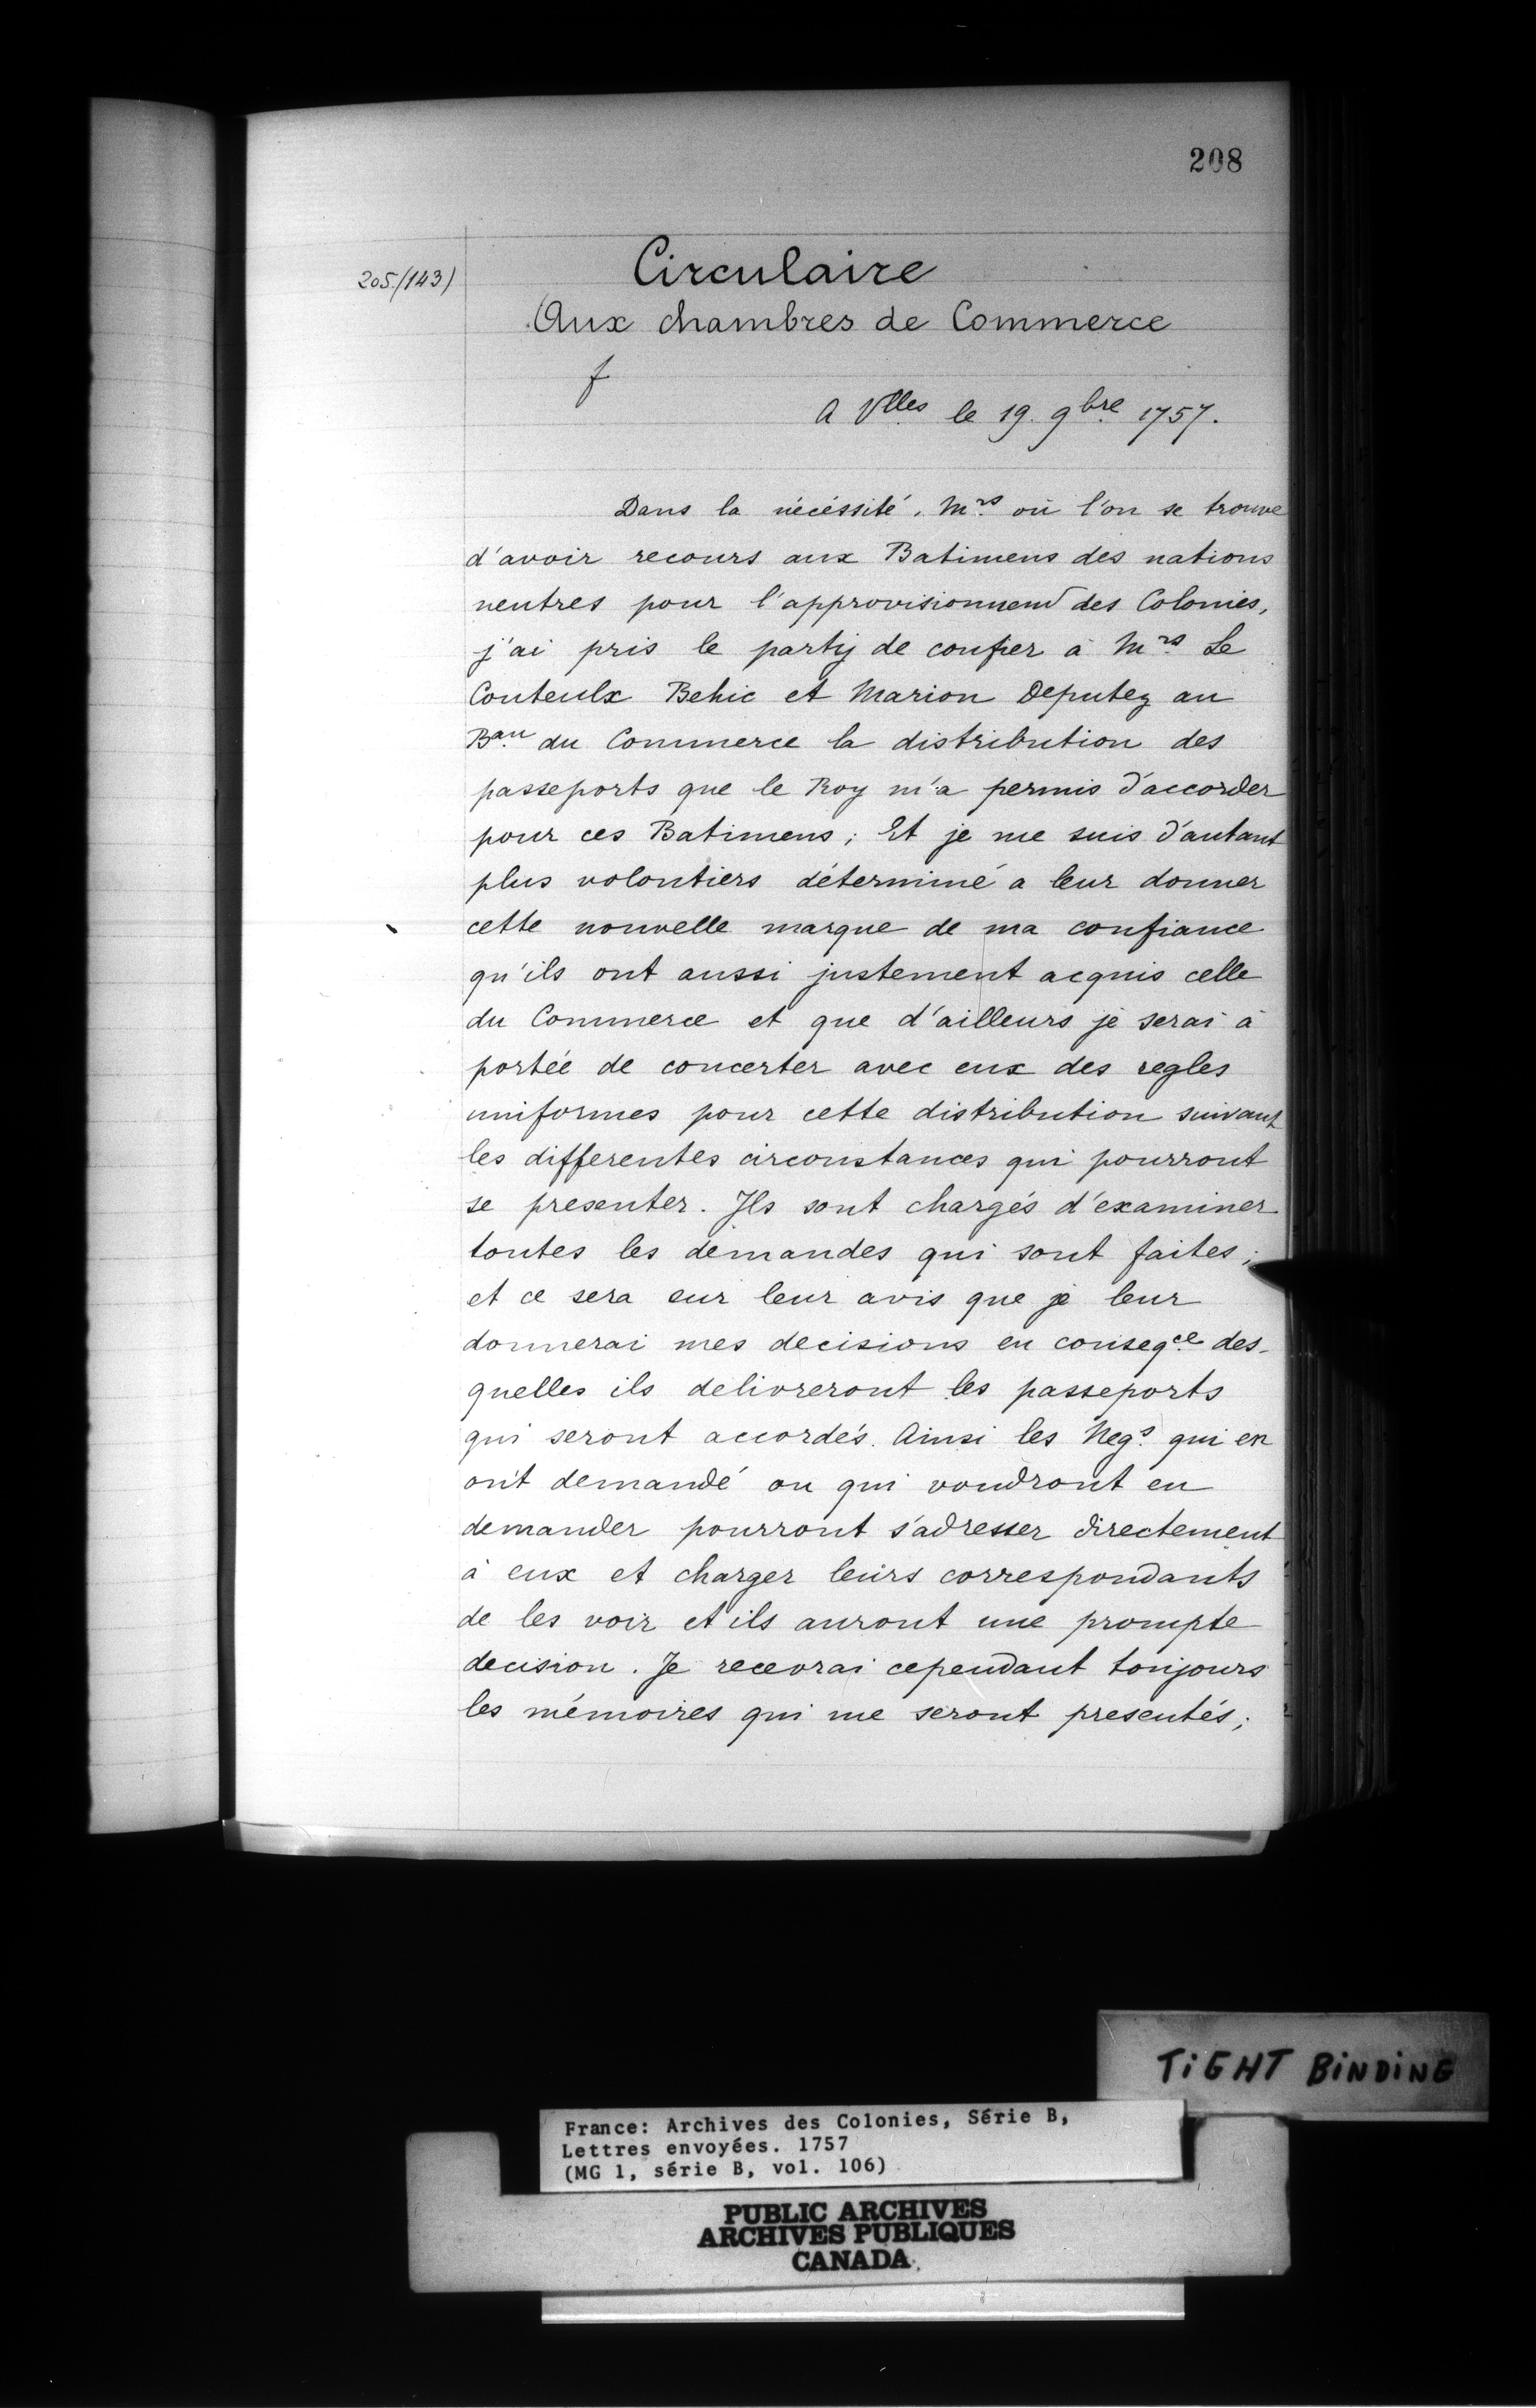 208
205/143)
Circulaire
Aux chambres de Commerce
f
A Vlles le 19. 9bre 1757.
Dans la nécéssité, Mrs où l'on se trouve
d'avoir recours aux Batimens des nations
neutres pour l'approvisionnemt des Colonies,
j'ai pris le party de confier à Mrs Le
Couteulx Behic et Marion Deputez au
Bau du Commerce la distribution des
passeports que le Roy m'a permis d'accorder
pour ces Batimens; Et je me suis d'autant
plus volontiers déterminé a leur donner
cette nouvelle marque de ma confiance
qu'ils ont aussi justement acquis celle
du Commerce et que d'ailleurs je serai à
portée de concerter avec eux des regles
uniformes pour cette distribution suivant
les differentes circonstances qui pourront
se presenter. Ils sont chargés d'examiner
toutes les demandes qui sont faites;
et ce sera sur leur avis que je leur
donnerai mes decisions en conseqce des-
quelles ils delivreront les passeports
qui seront accordés. Ainsi les Negs qui en
ont demandé ou qui voudront en
demander pourront s'adresser directement
à eux et charger leurs correspondants
de les voir et ils auront une prompte
decision. Je recevrai cependant toujours
les mémoires qui me seront presentés;
TIGHT BINDING
France: Archives des Colonies, Série B,
Lettres envoyées. 1757
(MG 1, série B, vol. 106)
PUBLIC ARCHIVES
ARCHIVES PUBLIQUES
CANADA